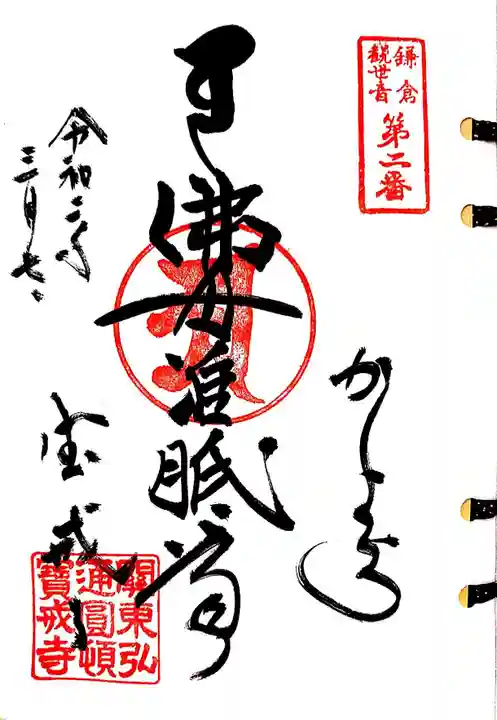 鎌倉
觀世音
第二番
佛母准胝尊
令和二年
三月七日
宝戒寺
關東弘
通圓頓
寶戒寺